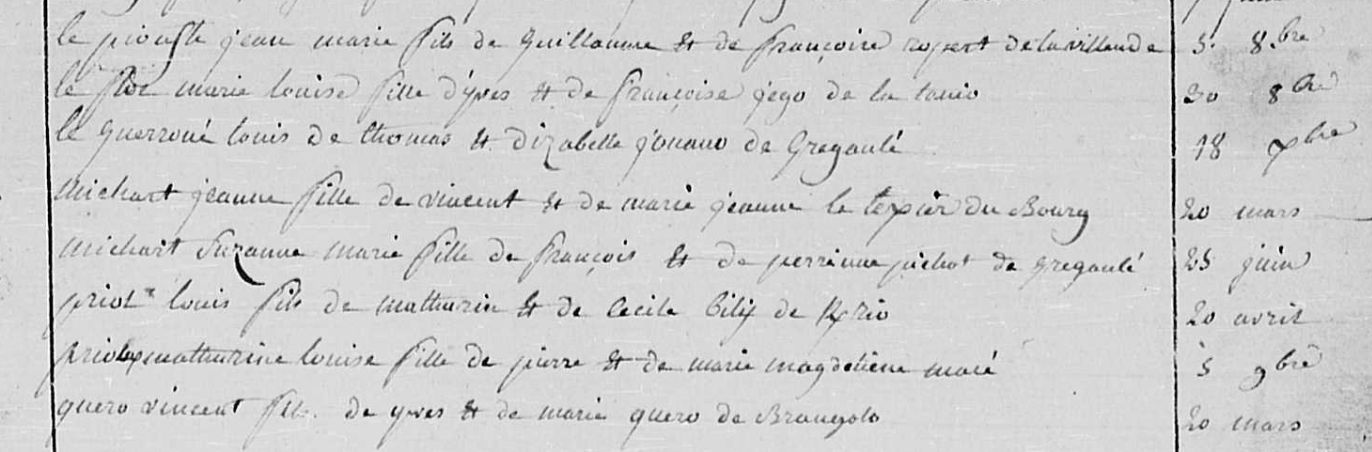 le piouffle jean marie fils de Guillaume et de françoise ropert de la villeude 5. 8.bre
le floc marie louise fille d'yves et de françoise jego de la 30 8bre
le Guerroué louis de thomas et d'izabelle jouano de Gregaulé 18 xbre
michart jeanne fille de vincent et de marie jeanne le texier du Bourg 20 mars
michart Suzanne marie fille de françois et de perrinne pichot de gregaulé 25 juin
priol louis fils de mathurin et de Cecile Bily de 20 avril
mathurine louise fille de pierre et de marie magdeleine macé 5 9bre
quero vincent fils. de yves et de marie quero de Brangolo 20 mars